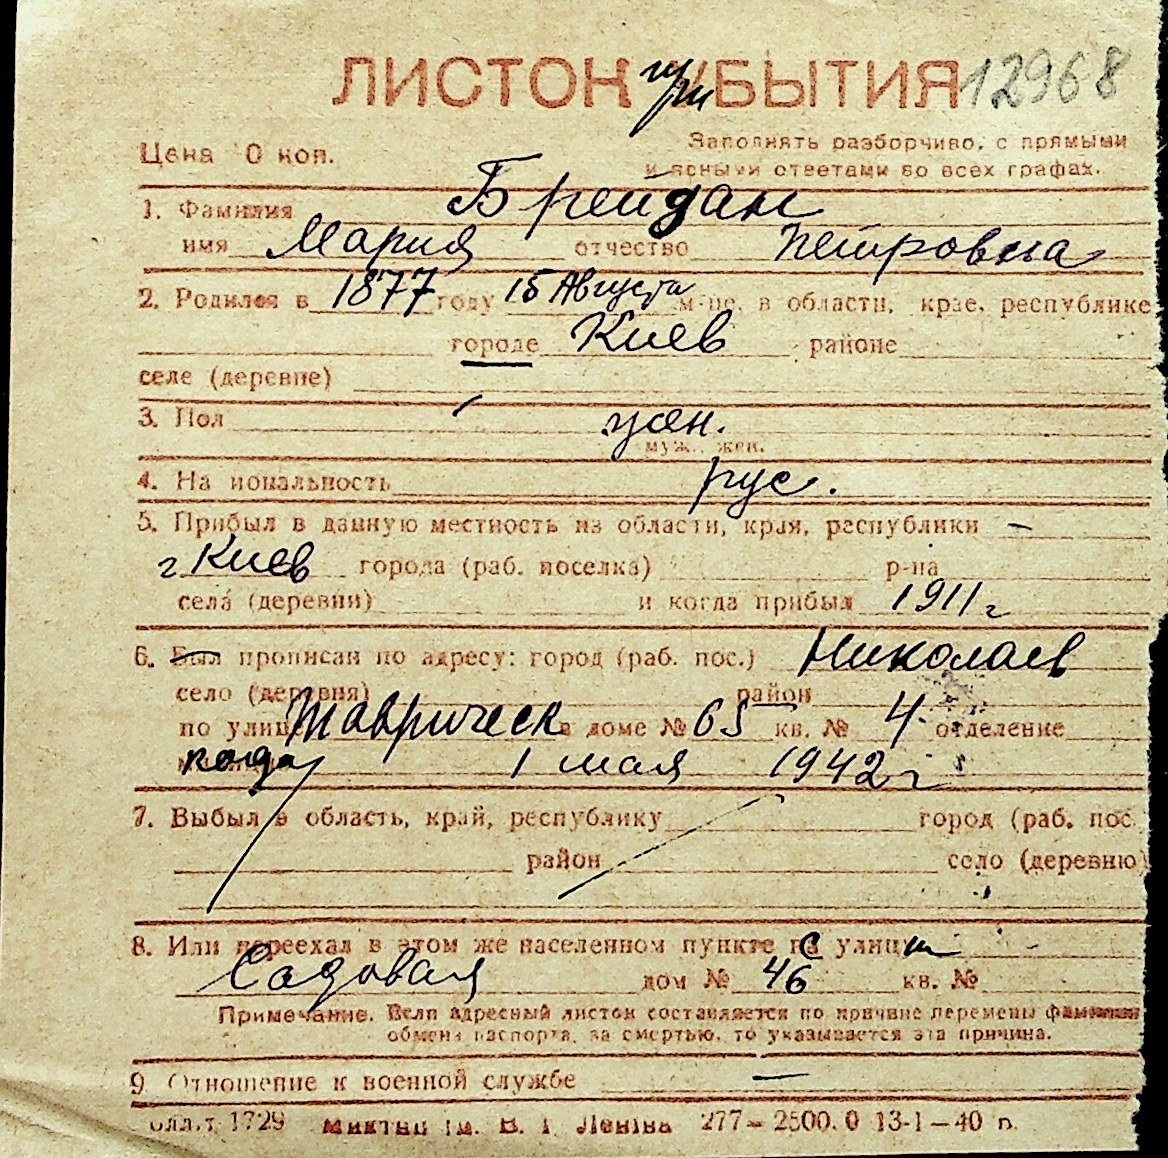 ЛИСТОК при БЫТИЯ 12968
Цена 10 коп.
Заполнять разборчиво, с прямыми
и ясными ответами во всех графах.
1. Фамилия Брейдан
имя Мария отчество Петровна
2. Родился в 1877 году 15 Августа м-це, в области, крае, республике
городе Киев районе
селе (деревне)
3. Пол жен.
муж., жен.
4. Национальность рус.
5. Прибыл в данную местность из области, края, республики —
г Киев города (раб. поселка) р-на
села (деревни) и когда прибыл 1911 г
6. Был прописан по адресу: город (раб. пос.) Николаев
село (деревня) район
по улице Таврическ в доме № 65 кв. № 4 отделение
когда 1 мая 1942 г
7. Выбыл в область, край, республику город (раб. пос.
район село (деревню)
8. Или переехал в этом же населенном пункте с улиц
Садовая дом № 46 кв. №
Примечание. Если адресный листок составляется по причине перемены фамилии
обмена паспорта, за смертью, то указывается эта причина.
9 Отношение к военной службе —
1729 ім. В. І. Леніна 277 — 2500.0 13-1 — 40 п.